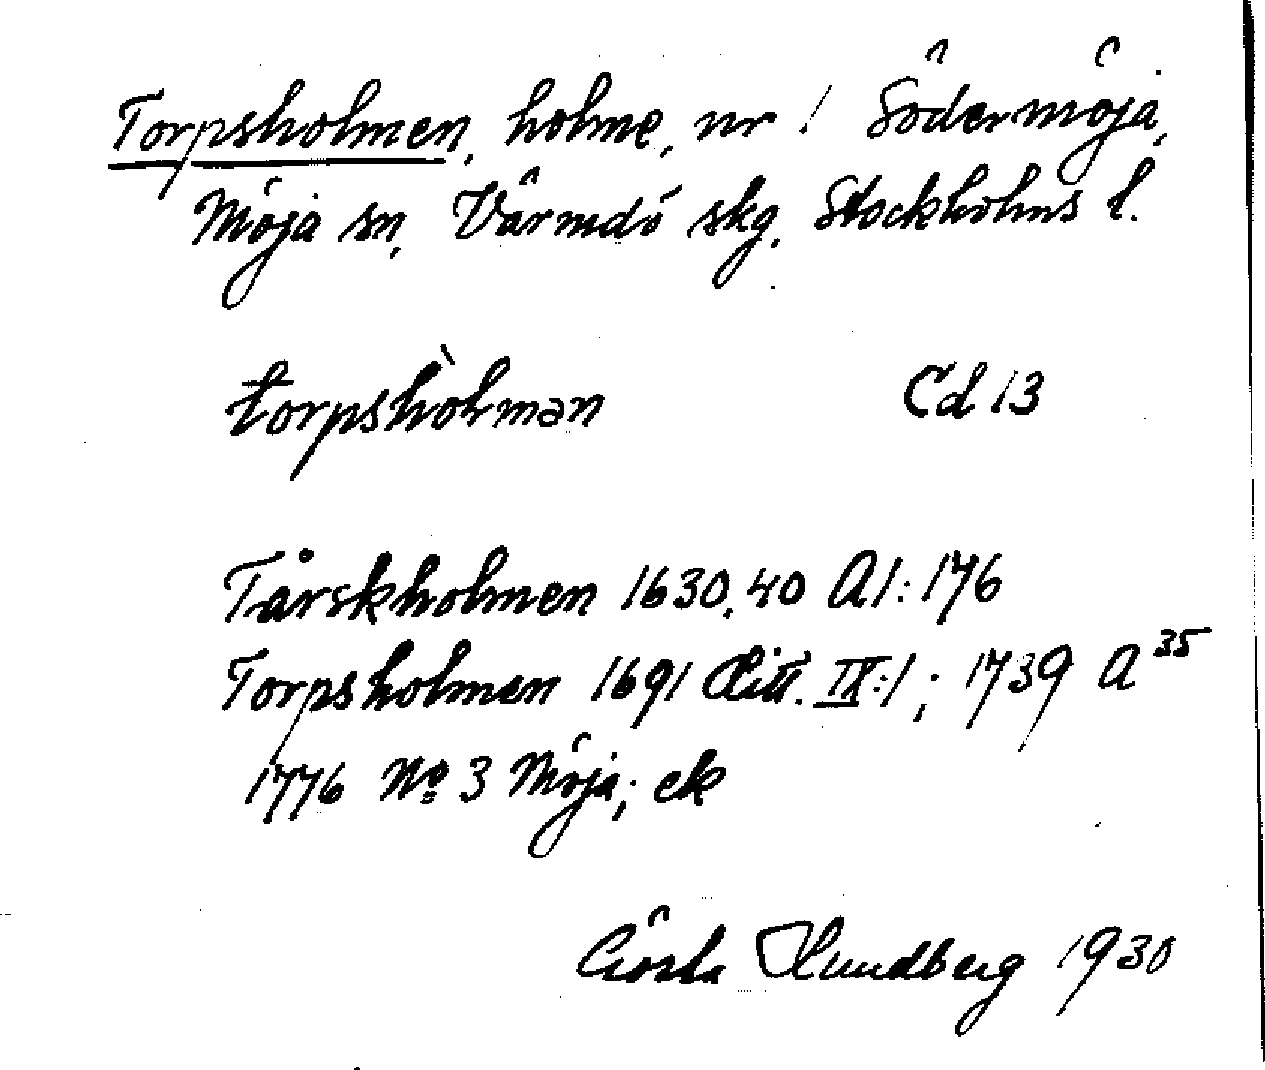 Torpsholmen, holme, nr 1 Södermöja,
Möja sn, Värmdö skg, Stockholms l.
torpshòlman Cd 13
Tårskholmen 1630, 40 A1:176
Torpsholmen 1691 Litt. IX:1; 1739 A 35
1776 No 3 Möja; ek
Gösta Lundberg 1930